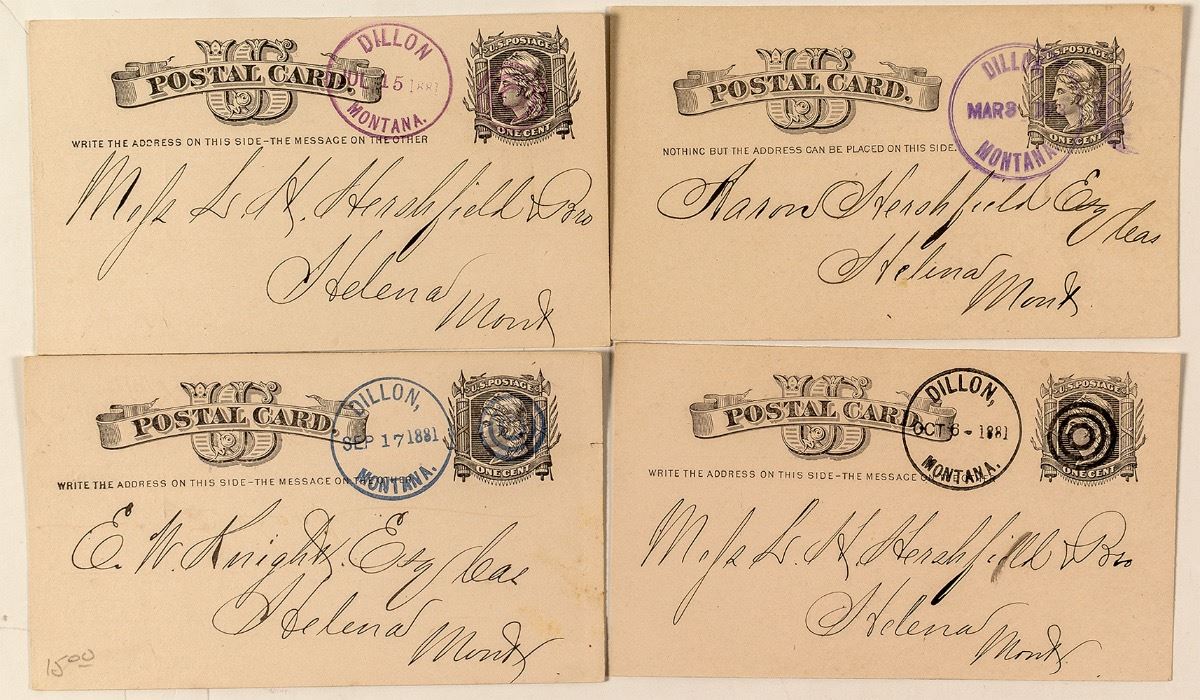 POSTAL CARD.
DILLON
JUL 15 1881
MONTANA.
U.S. POSTAGE
ONE CENT
WRITE THE ADDRESS ON THIS SIDE–THE MESSAGE ON THE OTHER
Mess L. H. Hershfield & Bro
Helena
Mont
POSTAL CARD.
DILLON
MAR 8
MONTANA
U.S. POSTAGE
ONE CENT
NOTHING BUT THE ADDRESS CAN BE PLACED ON THIS SIDE.
Aaron Hershfield Esq
Cas
Helena
Mont.
POSTAL CARD.
DILLON,
SEP 17 1881
MONTANA.
U.S. POSTAGE
ONE CENT
WRITE THE ADDRESS ON THIS SIDE–THE MESSAGE ON THE OTHER
E. W. Knight. Esq Cas
Helena
Mont
15.00
POSTAL CARD.
DILLON,
OCT 6 - 1881
MONTANA.
U.S. POSTAGE
ONE CENT
WRITE THE ADDRESS ON THIS SIDE–THE MESSAGE ON THE OTHER
Mess L. H. Hershfield & Bro
Helena
Mont.